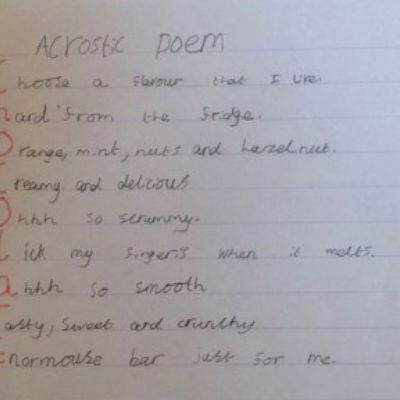 Acrostic poem
Choose a flavour that I like.
hard from the fridge.
Orange, mint, nuts and hazelnut.
Creamy and delicious
Ohhh so scrummy.
lick my fingers when it melts.
ahhh so smooth
Tasty, sweet and crunchy
Enormouse bar just for me.